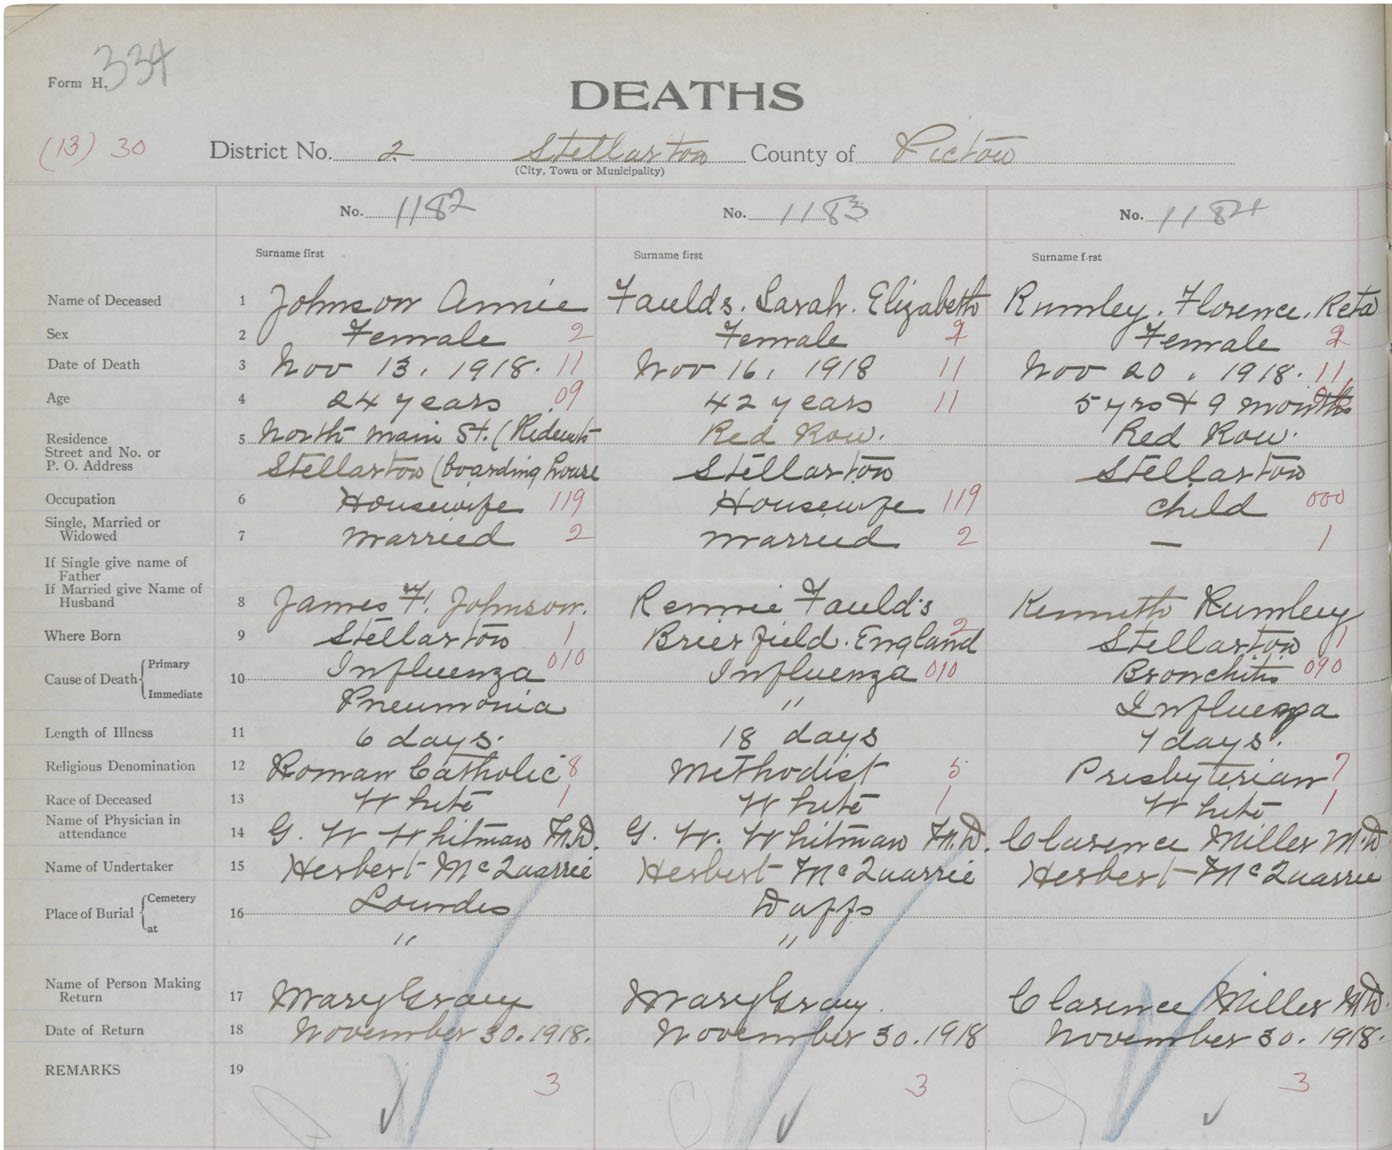 Form H. 334
DEATHS
(13) 30
District No. 2 Stellarton County of Pictou
(City, Town or Municipality)
No. 1182 No. 1183 No. 1184
Surname first Surname first Surname first
Name of Deceased 1 Johnson Annie Faulds. Sarah. Elizabeth Rumley. Florence. Reta
Sex 2 Female 2 Female 2 Female 2
Date of Death 3 Nov 13. 1918. 11 Nov 16, 1918 11 Nov 20. 1918. 11
Age 4 24 years 09 42 years 11 5 yrs + 9 months
Residence
Street and No. or
P. O. Address
5 North main St. ( Red Row. Red Row.
Stellarton (boarding house Stellarton Stellarton
Occupation 6 Housewife 119 Housewife 119 child 000
Single, Married or
Widowed
7 Married 2 Married 2 — 1
If Single give name of
Father
If Married give Name of
Husband
8 James F. Johnson. Rennie Faulds Kenneth Rumley
Where Born 9 Stellarton 1 Brierfield. England 2 Stellarton 1
Cause of Death { Primary 10 Influenza 010 Influenza 010 Bronchitis 090
Immediate Pneumonia " Influenza
Length of Illness 11 6 days. 18 days 7 days.
Religious Denomination 12 Roman Catholic 8 Methodist 5 Presbyterian 7
Race of Deceased 13 White 1 White 1 White 1
Name of Physician in
attendance
14 G. W Whitman M.D. G. W. Whitman M.D. Clarence Miller M.D
Name of Undertaker 15 Herbert McQuarrie Herbert McQuarrie Herbert McQuarrie
Place of Burial { Cemetery 16 Lourdes Duffs
at " "
Name of Person Making
Return
17 Mary Gray Mary Gray. Clarence Miller M.D.
Date of Return 18 November 30. 1918. November 30. 1918 November 30. 1918.
REMARKS 19 3 3 3